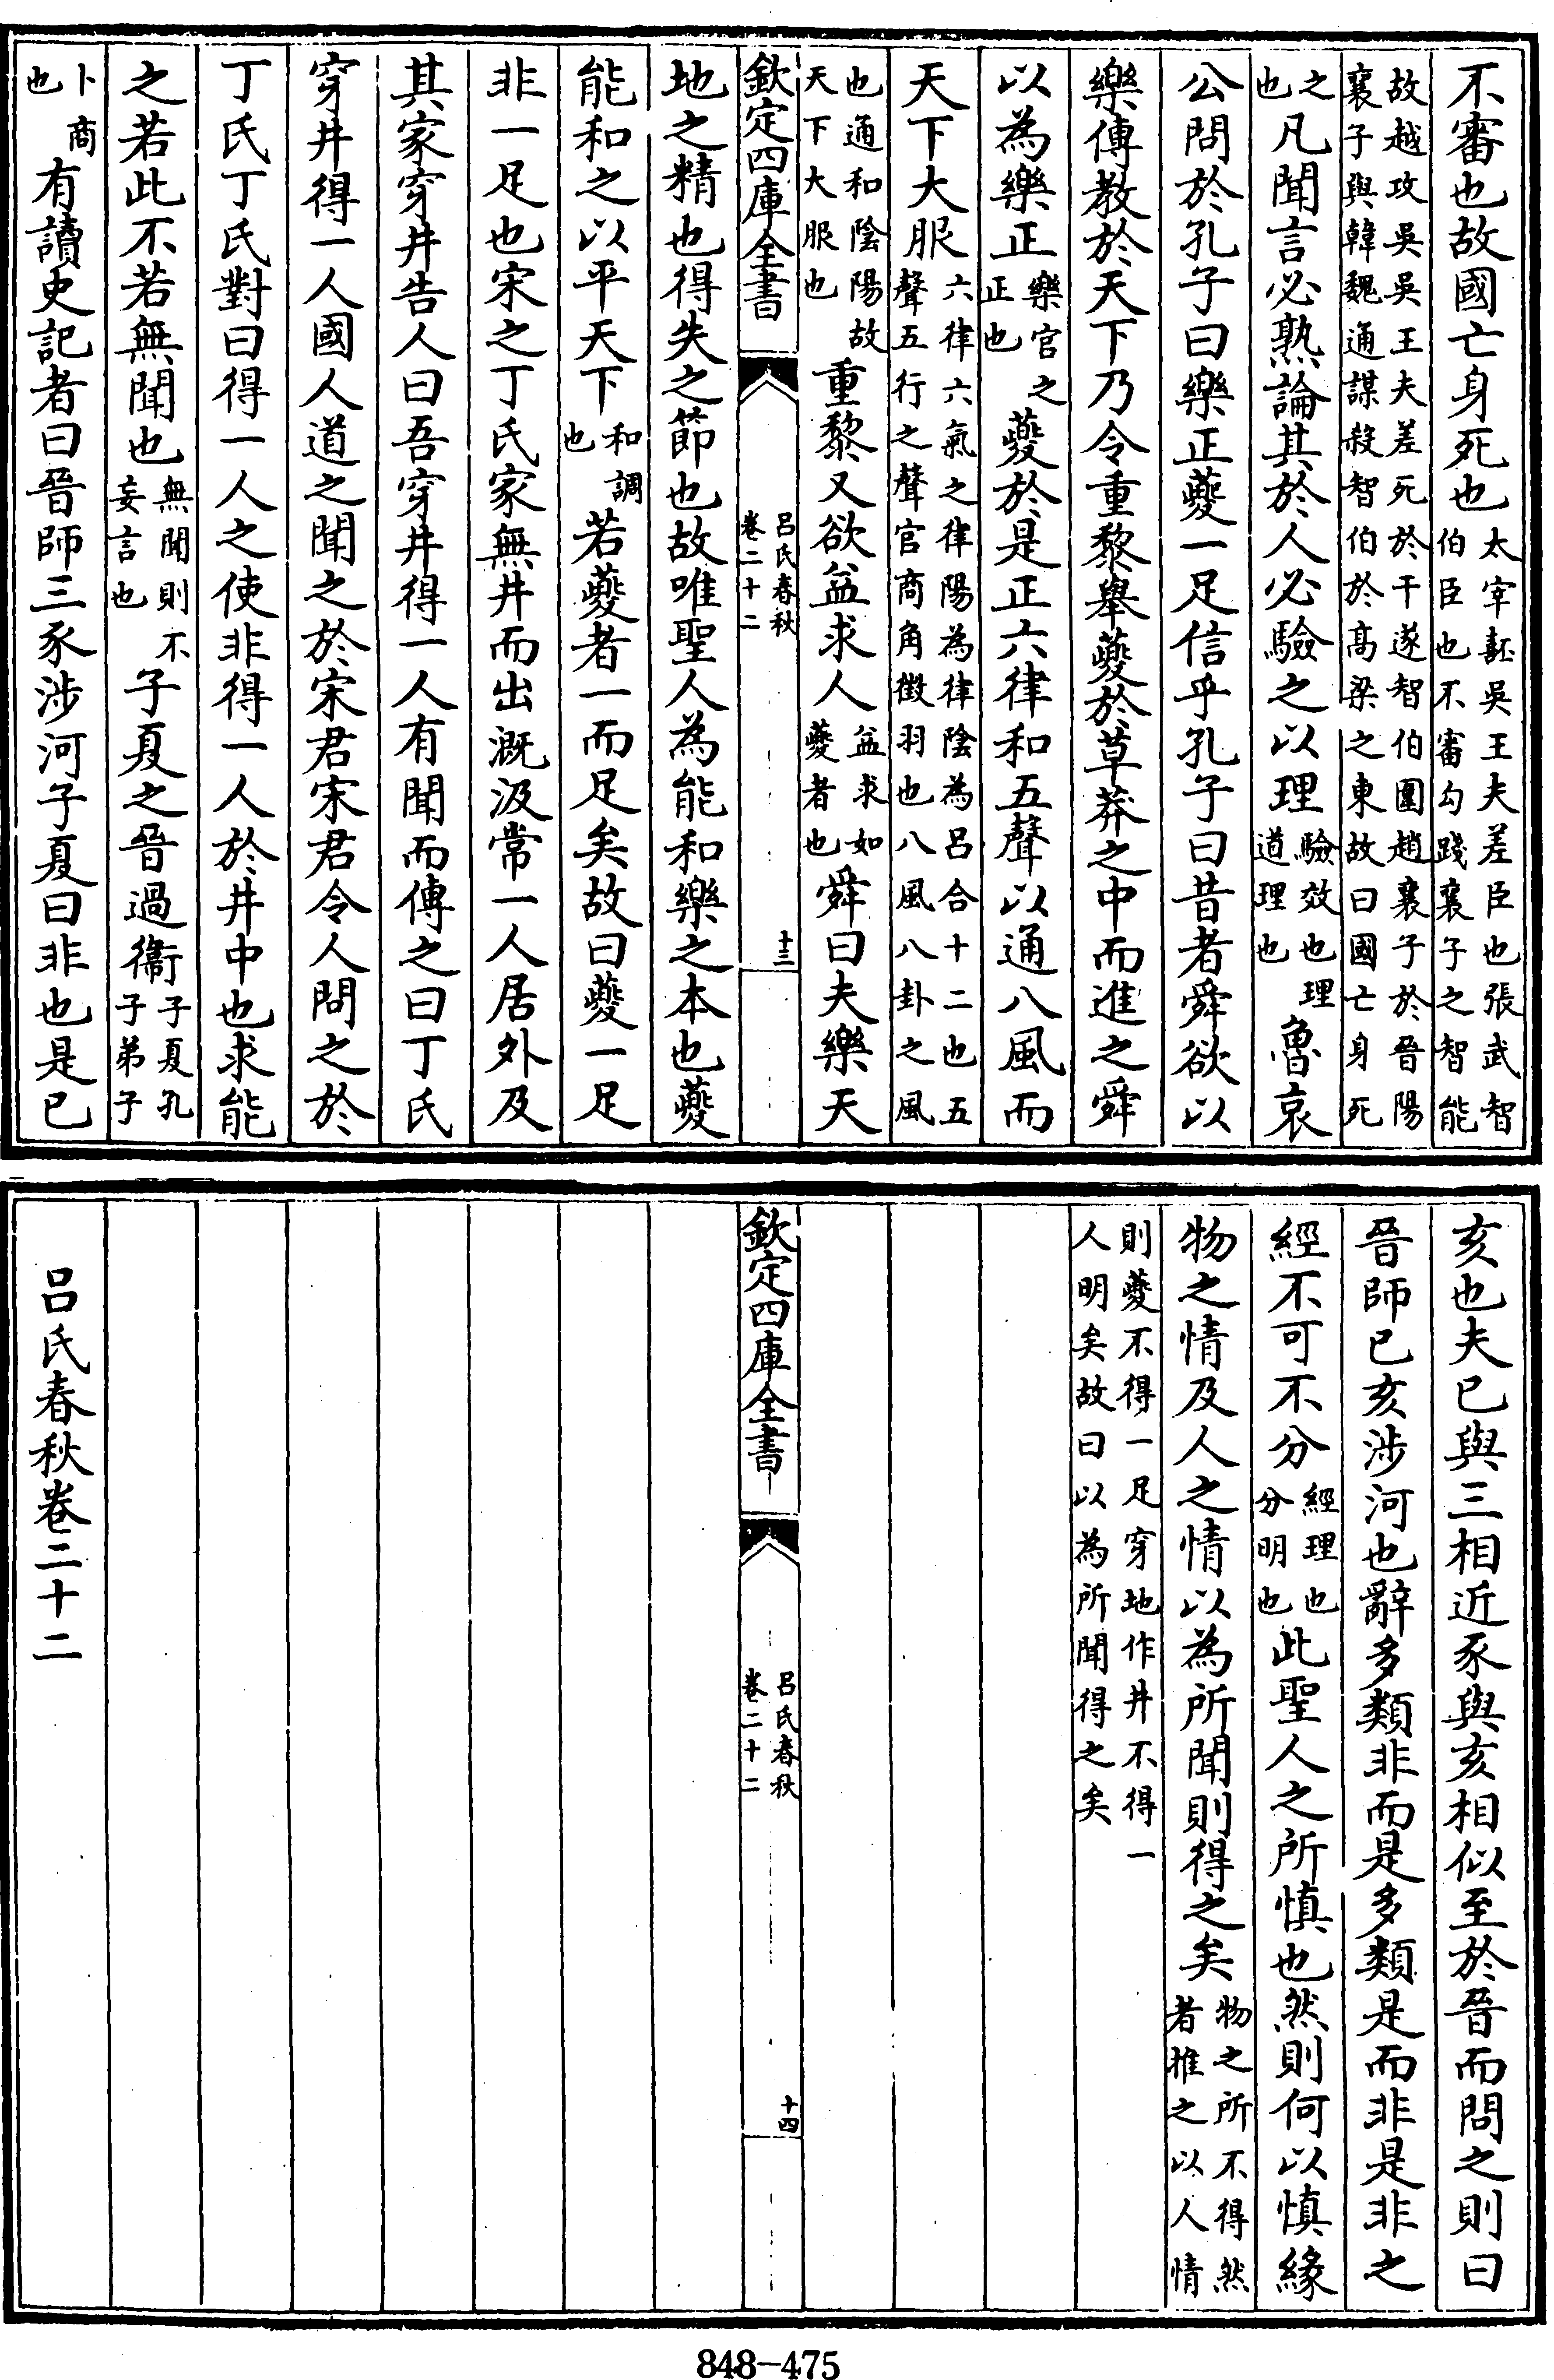 不審也故國亡身死也太宰嚭吳王夫差臣也張武智伯臣也不審勾踐襄子之智能
故越攻吳吳王夫差死於干遂智伯圍趙襄子於晉陽襄子與韓魏通謀殺智伯於高梁之東故曰國亡身死
之也凡聞言必熟論其於人必驗之以理驗效也理道理也魯哀
公問於孔子曰樂正夔一足信乎孔子曰昔者舜欲以
樂傳教於天下乃令重黎舉夔於草莽之中而進之舜
以為樂正樂官之正也夔於是正六律和五聲以通八風而
天下大服六律六氣之律陽為律陰為呂合十二也五聲五行之聲宮商角徵羽也八風八卦之風
也通和陰陽故天下大服也重黎又欲益求人益求如夔者也舜曰夫樂天
欽定四庫全書
呂氏春秋
卷二十二
十三
地之精也得失之節也故唯聖人為能和樂之本也夔
能和之以平天下和調也若夔者一而足矣故曰夔一足
非一足也宋之丁氏家無井而出溉汲常一人居外及
其家穿井告人曰吾穿井得一人有聞而傳之曰丁氏
穿井得一人國人道之聞之於宋君宋君令人問之於
丁氏丁氏對曰得一人之使非得一人於井中也求能
之若此不若無聞也無聞則不妄言也子夏之晉過衞子夏孔子弟子
卜商也有讀史記者曰晉師三豕涉河子夏曰非也是已
亥也夫已與三相近豕與亥相似至於晉而問之則曰
晉師已亥涉河也辭多類非而是多類是而非是非之
經不可不分經理也分明也此聖人之所慎也然則何以慎緣
物之情及人之情以為所聞則得之矣物之所不得然者推之以人情
則夔不得一足穿地作井不得一人明矣故曰以為所聞得之矣
欽定四庫全書
呂氏春秋
卷二十二
十四
呂氏春秋卷二十二
848-475